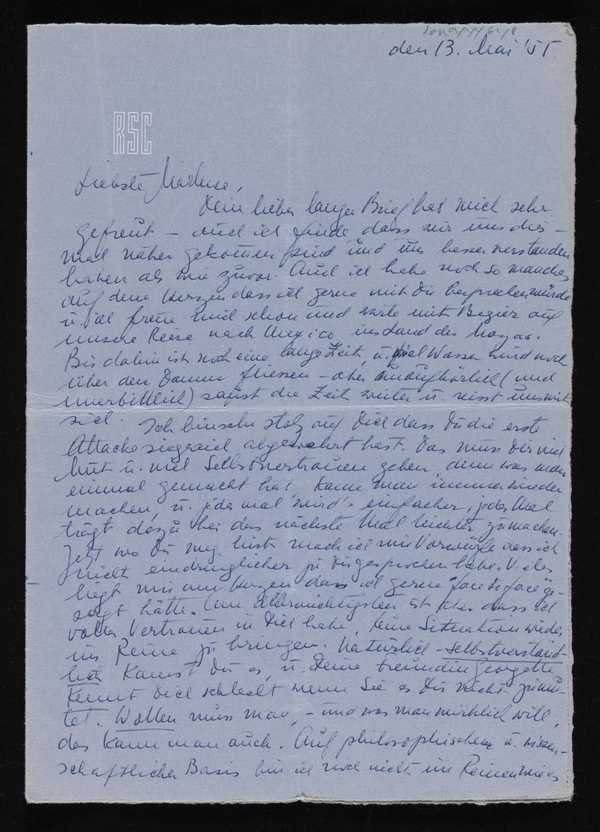 den 13. Mai '55
RSC
Liebste Marlene,
Dein lieber langer Brief hat mich sehr
gefreut – und ich finde dass wir uns dies-
mal näher gekommen sind und uns besser verstanden
haben als wie zuvor. Auch ich habe noch so manches
auf dem Herzen dass ich gerne mit Dir besprechen würde
u. ich freue mich schon und warte mit Begier auf
unsere Reise nach Mexico ins Land der Mayas.
Bis dahin ist noch eine lange Zeit u. viel Wasser wird noch
über den Damm fliessen – aber unaufhörlich (und
unerbittlich) saust die Zeit weiter u. reisst uns mit
sich. Ich bin sehr stolz auf Dich dass Du die erste
Attacke siegreich abgewehrt hast. Das muss Dir viel
Mut u. viel Selbstvertrauen geben, denn was man
einmal gemacht hat, kann man immer wieder
machen, u. jedes mal wird's einfacher, jedes Mal
trägt dazu bei das nächste Mal leichter zu machen.
Jetzt wo Du weg bist mach ich mir Vorwürfe dass ich
nicht eindringlicher zu Dir gesprochen habe. Vieles
liegt mir am Herzen dass ich gerne face to face ge-
sagt hätte. Am Allerwichtigsten ist aber dass ich
volles Vertrauen in Dich habe, Deine Situation wieder
ins Reine zu bringen. Natürlich – selbstverständ-
lich kannst Du es, u. Deine Freundin Georgette
kennt Dich schlecht wenn Sie es Dir nicht zumu-
tet. Wollen muss man, – und was man wirklich will,
das kann man auch. Auf philosophischer u. wissen-
schaftlicher Basis bin ich noch nicht im Reinen wie es